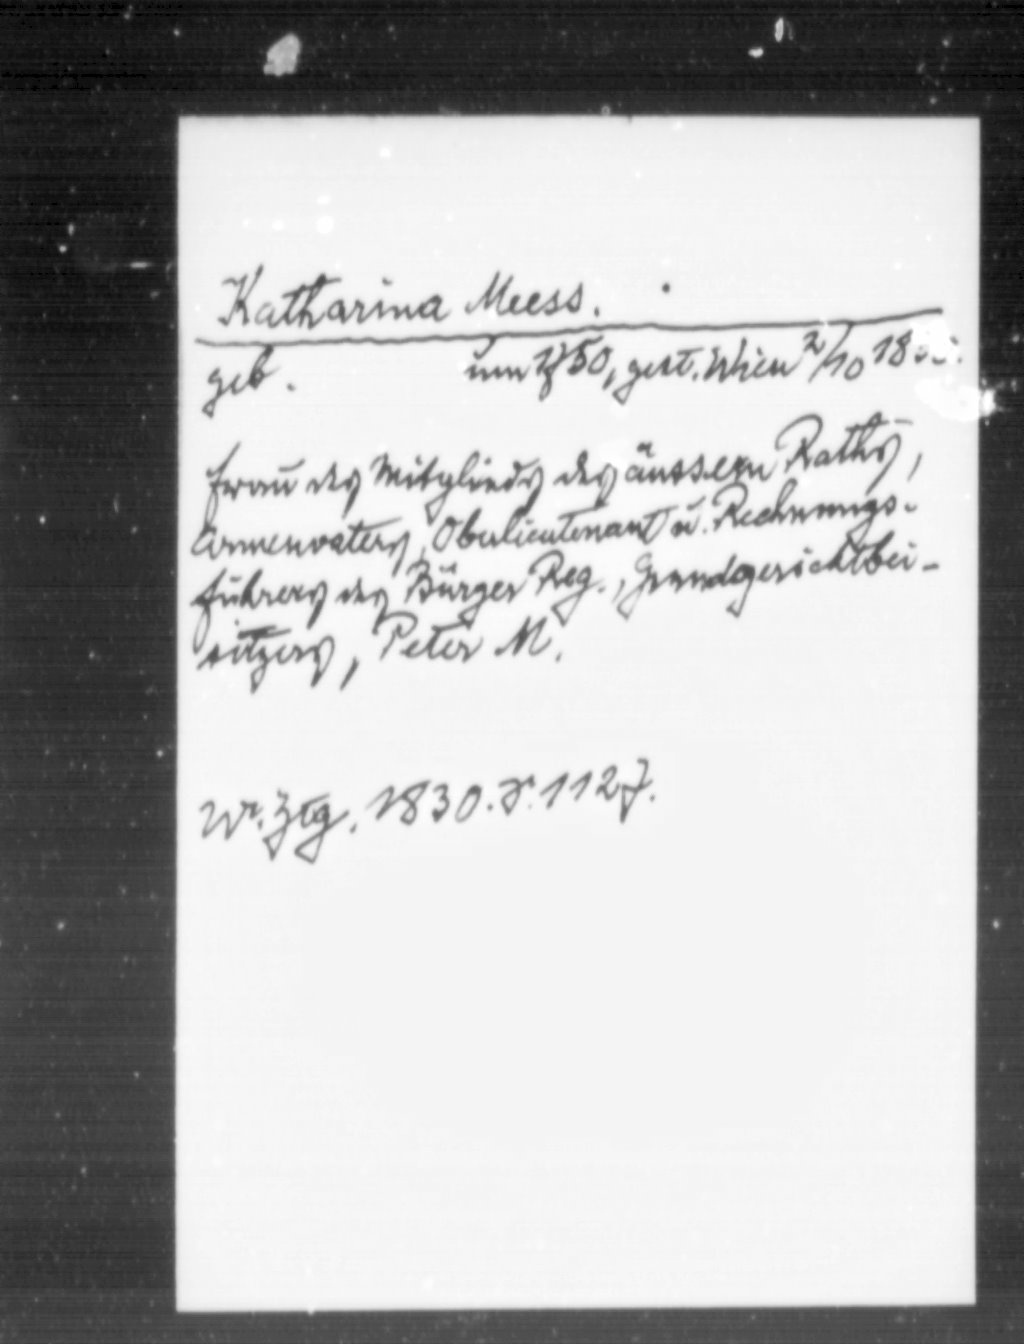 Katharina Meess.
geb. um 1750, gest. Wien 2/10 18
Frau des Mitglieds des äussern Raths,
Armenvaters, Oberlieutenant u. Rechnungs-
führers des Bürger Reg., Grundgerichtbei-
sitzers, Peter M.
Wr. Ztg. 1830. S. 1127.